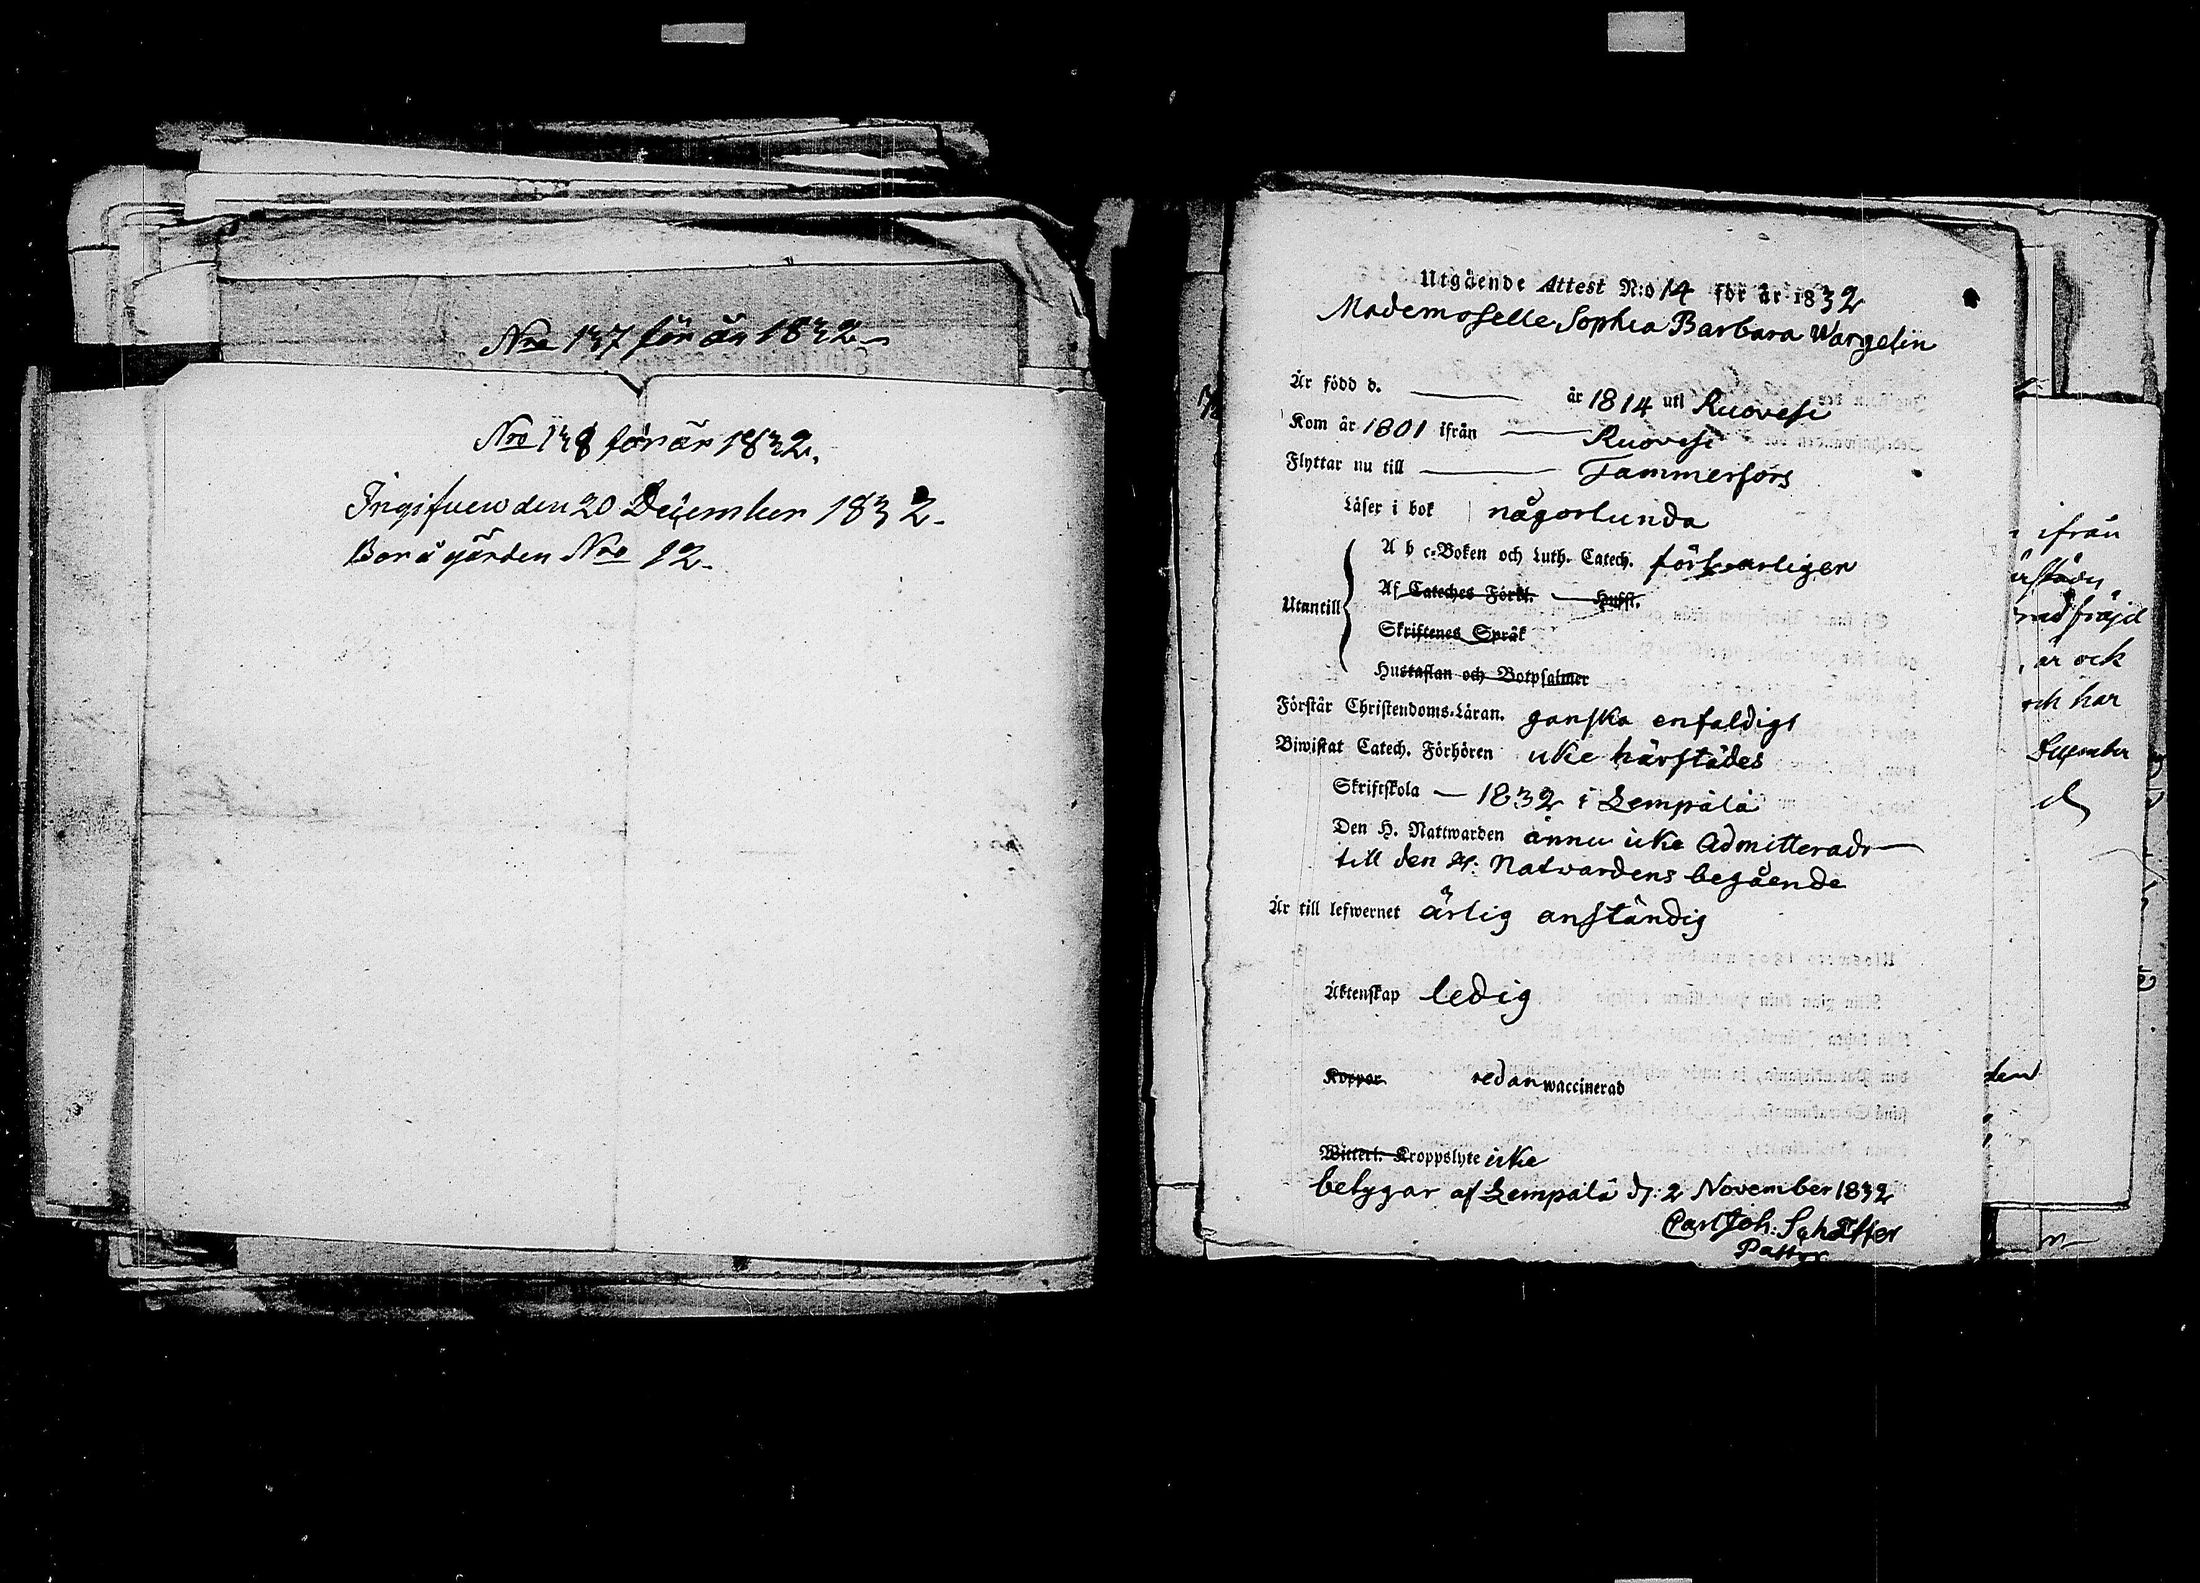 Nro 137 för år 1832
Nro 138 för år 1832.
Ingifven den 20 December 1832.
Bor å gården Nro 12.
Utgående Attest N:o 14 för år 1832
Mademoselle Sophia Barbara Wargelin
Är född d. år 1814 uti Ruovesi
Kom år 1801 ifrån Ruovesi
Flyttar nu till Tammerfors
Läser i bok någorlunda
A b c-Boken och Luth. Catech. försvarligen
Utantill
Af Cateches Förkl. Hussl.
Skriftenes Språk
Hustaflan och Botpsalmer
Förstår Christendoms-Läran. ganska enfaldigt
Biwistat Catech. Förhören icke härstädes
Skriftskola — 1832 i Lempälä
Den H. Nattwarden ännu icke Admitterad
till den H. Natvardens begående
Är till lefwernet ärlig anständig
Äktenskap ledig
Koppor redan waccinerad
Witterl. Kroppslyte icke
betygar af Lempälä d. 2 November 1832
Carl Joh: Schæffer
Pastor
ifrån
med fräjd
är ock
och har
December